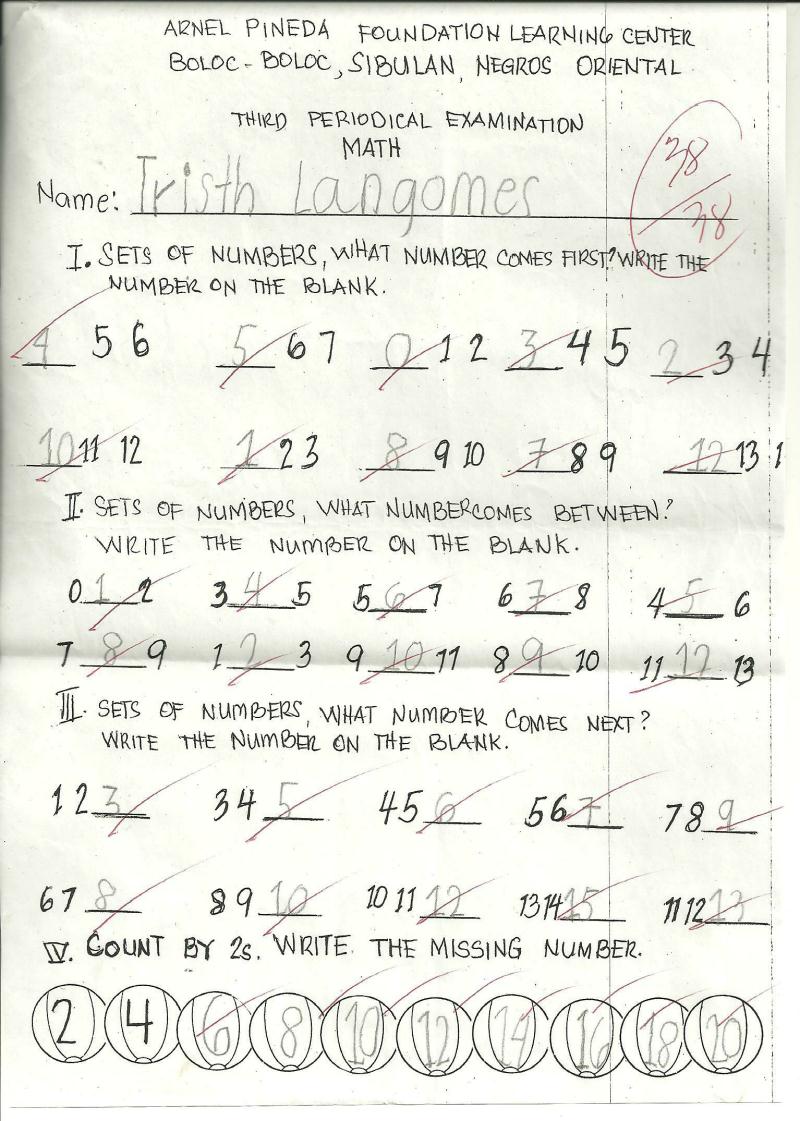 ARNEL PINEDA FOUNDATION LEARNING CENTER
BOLOC-BOLOC, SIBULAN, NEGROS ORIENTAL
THIRD PERIODICAL EXAMINATION
MATH
38/38
Name: Tristh Langomes
I. SETS OF NUMBERS, WHAT NUMBER COMES FIRST? WRITE THE
NUMBER ON THE BLANK.
4 5 6 5 6 7 0 1 2 3 4 5 2 3 4
10 11 12 1 2 3 8 9 10 7 8 9 12 13 1
II. SETS OF NUMBERS, WHAT NUMBERCOMES BETWEEN?
WRITE THE NUMBER ON THE BLANK.
0 1 2 3 4 5 5 6 7 6 7 8 4 5 6
7 8 9 1 2 3 9 10 11 8 9 10 11 12 13
III. SETS OF NUMBERS, WHAT NUMBER COMES NEXT?
WRITE THE NUMBER ON THE BLANK.
1 2 3 3 4 5 4 5 6 5 6 7 7 8 9
6 7 8 8 9 10 10 11 12 13 14 15 11 12 13
IV. COUNT BY 2s. WRITE THE MISSING NUMBER.
2 4 6 8 10 12 14 16 18 20